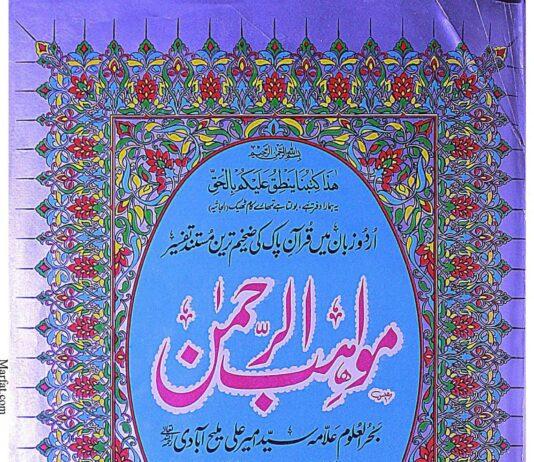 بسم اللہ الرحمن الرحیم
هٰذَا كِتٰبُنَا يَنْطِقُ عَلَيْكُمْ بِالْحَقِّ
یہ ہمارا دفتر ہے، بولتا ہے تمہارے کام ٹھیک (الجاثیہ)
اُردو زبان میں قرآنِ پاک کی ضخیم ترین مُستند تفسیر
مواہب الرحمٰن
بحرالعلوم علامہ سید امیر علی ملیح آبادی
Marfat.com